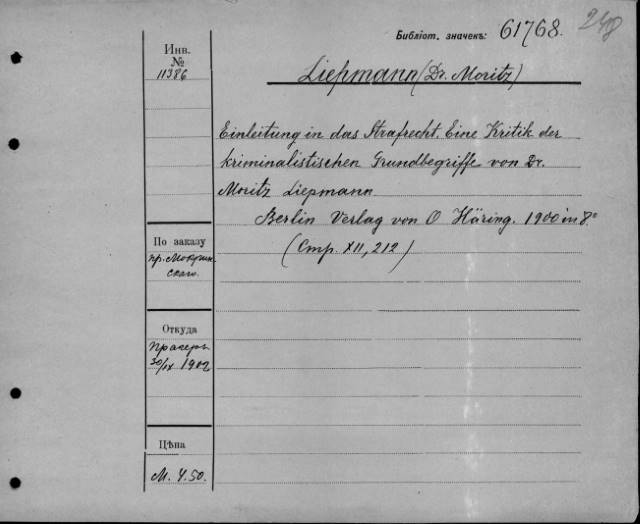 Библіот. значекъ: 61768.
248
Инв.
№
11386
Liepmann (Dr. Moritz)
Einleitung in das Strafrecht. Eine Kritik der
kriminalistischen Grundbegriffe von Dr.
Moritz Liepmann
Berlin Verlag von O Häring. 1900 in 8.°
(Стр. XII, 212)
По заказу
пр. Мокрин-
скаго.
Откуда
30/IX 1902
Цѣна
М. 4.50.